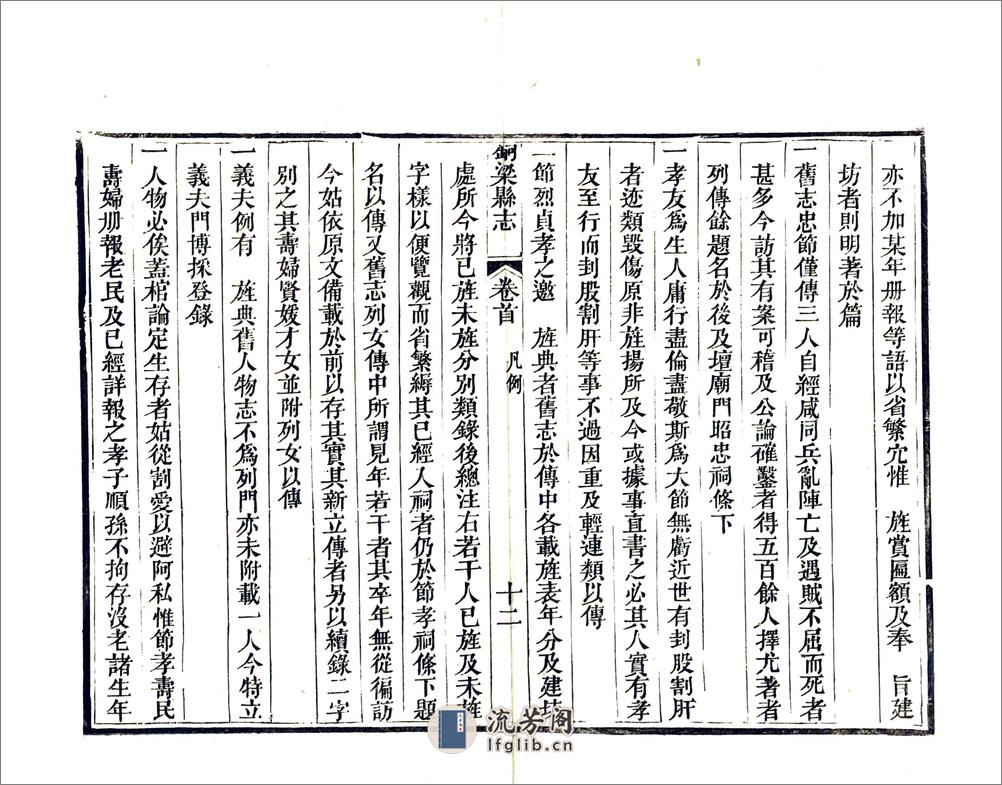 亦不加某年册報等語以省繁冗惟　旌賞匾額及奉　旨建
坊者則明著於篇
一舊志忠節僅傳三人自經咸同兵亂陣亡及遇賊不屈而死者
甚多今訪其有案可稽及公論確鑿者得五百餘人擇尤著者
列傳餘題名於後及壇廟門昭忠祠條下
一孝友爲生人庸行盡倫盡敬斯爲大節無虧近世有封股割肝
者迹類毀傷原非旌揚所及今或據事直書之必其人實有孝
友至行而封股割肝等事不過因重及輕連類以傳
一節烈貞孝之邀　旌典者舊志於傳中各載旌表年分及建坊
銅梁縣志　卷首　凡例　十二
處所今將已旌未旌分別類錄後總注右若干人已旌及未旌
字樣以便覽觀而省繁縟其已經入祠者仍於節孝祠條下題
名以傳又舊志列女傳中所謂見年若干者其卒年無從徧訪
今姑依原文備載於前以存其實其新立傳者另以續錄二字
別之其壽婦賢媛才女並附列女以傳
一義夫例有　旌典舊人物志不爲列門亦未附載一人今特立
義夫門博採登錄
一人物必俟蓋棺論定生存者姑從割愛以避阿私惟節孝壽民
壽婦册報老民及已經詳報之孝子順孫不拘存沒老諸生年
流芳阁
lfglib.cn